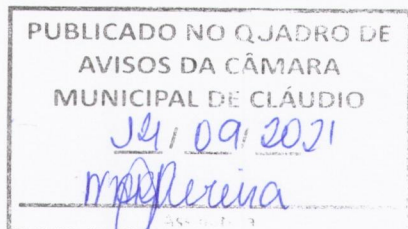 PUBLICADO NO QUADRO DE
AVISOS DA CÂMARA
MUNICIPAL DE CLÁUDIO
14/09/2021
Assinatura